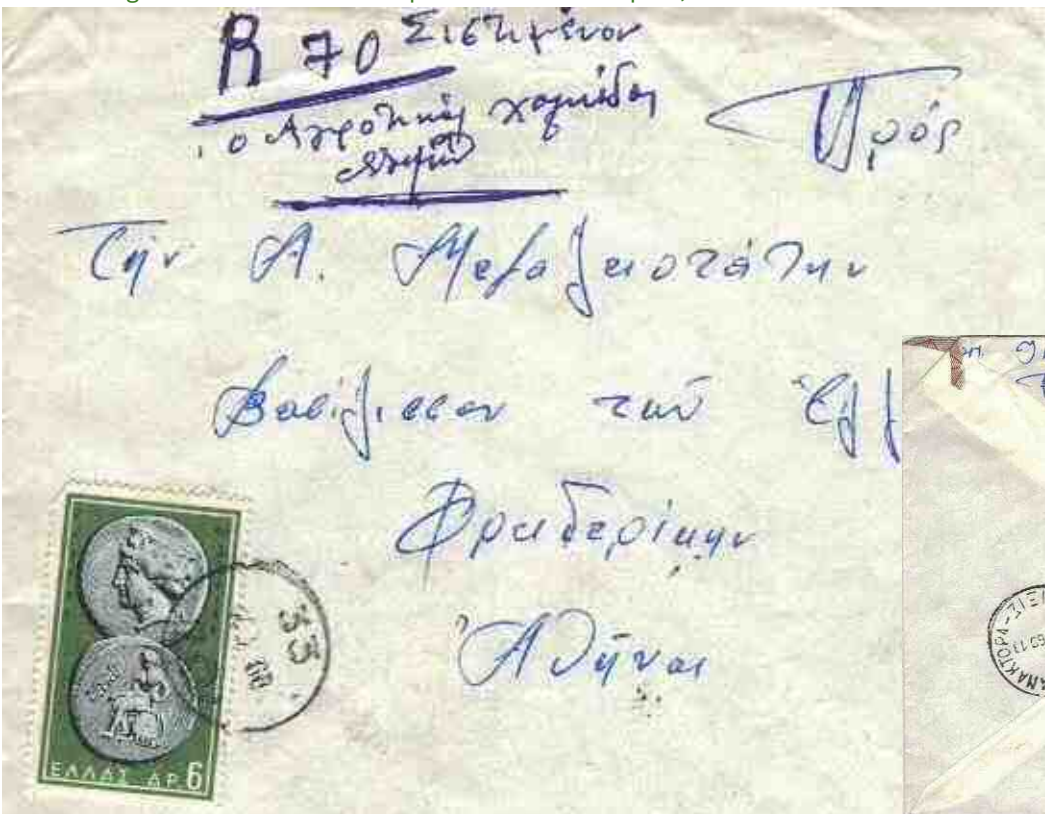 R 70 Συστημένον
ο Αγροτικός
Πρός
Τὴν Α. Μεγαλειοτάτην
Βασίλισσαν τῶν Ἑλλ
Φρειδερίκην
Ἀθήνας
33
ΕΛΛΑΣ ΔΡ. 6
ΑΝΑΚΤΟΡΑ